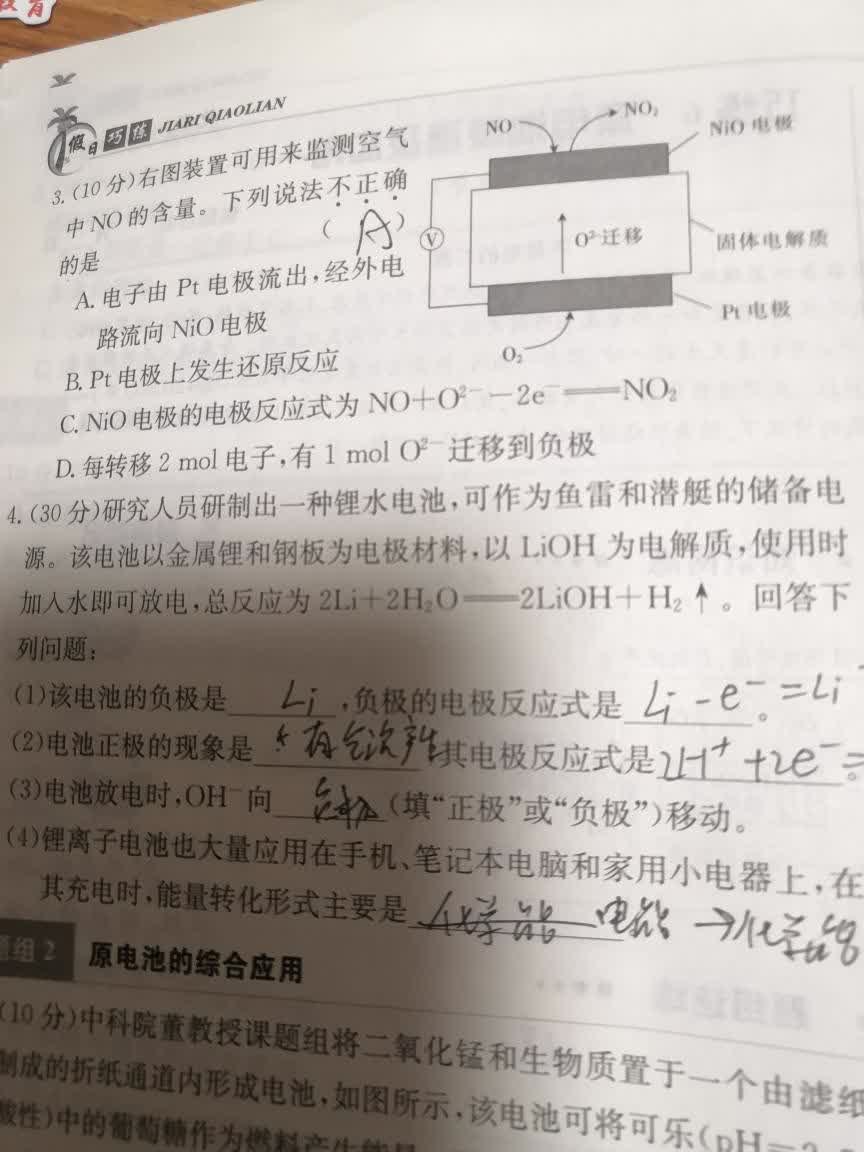 教育
假日巧练 JIARI QIAOLIAN
3.(10分)右图装置可用来监测空气
中NO的含量。下列说法不正确
的是 ( A )
A.电子由Pt电极流出,经外电
路流向NiO电极
B.Pt电极上发生还原反应
C.NiO电极的电极反应式为NO+O²⁻-2e⁻══NO₂
D.每转移2 mol电子,有1 mol O²⁻迁移到负极
NO
NO₂
NiO电极
V
O²⁻迁移
固体电解质
Pt电极
O₂
4.(30分)研究人员研制出一种锂水电池,可作为鱼雷和潜艇的储备电
源。该电池以金属锂和钢板为电极材料,以LiOH为电解质,使用时
加入水即可放电,总反应为2Li+2H₂O══2LiOH+H₂↑。回答下
列问题:
(1)该电池的负极是 Li ,负极的电极反应式是 Li-e⁻=Li 。
(2)电池正极的现象是 有气泡产生 其电极反应式是 2H⁺+2e⁻= 。
(3)电池放电时,OH⁻向 负极 (填“正极”或“负极”)移动。
(4)锂离子电池也大量应用在手机、笔记本电脑和家用小电器上,在
其充电时,能量转化形式主要是 化学能 电能→化学能
题组2 原电池的综合应用
(10分)中科院董教授课题组将二氧化锰和生物质置于一个由滤纸
制成的折纸通道内形成电池,如图所示,该电池可将可乐(pH=2.
酸性)中的葡萄糖作为燃料产生能量